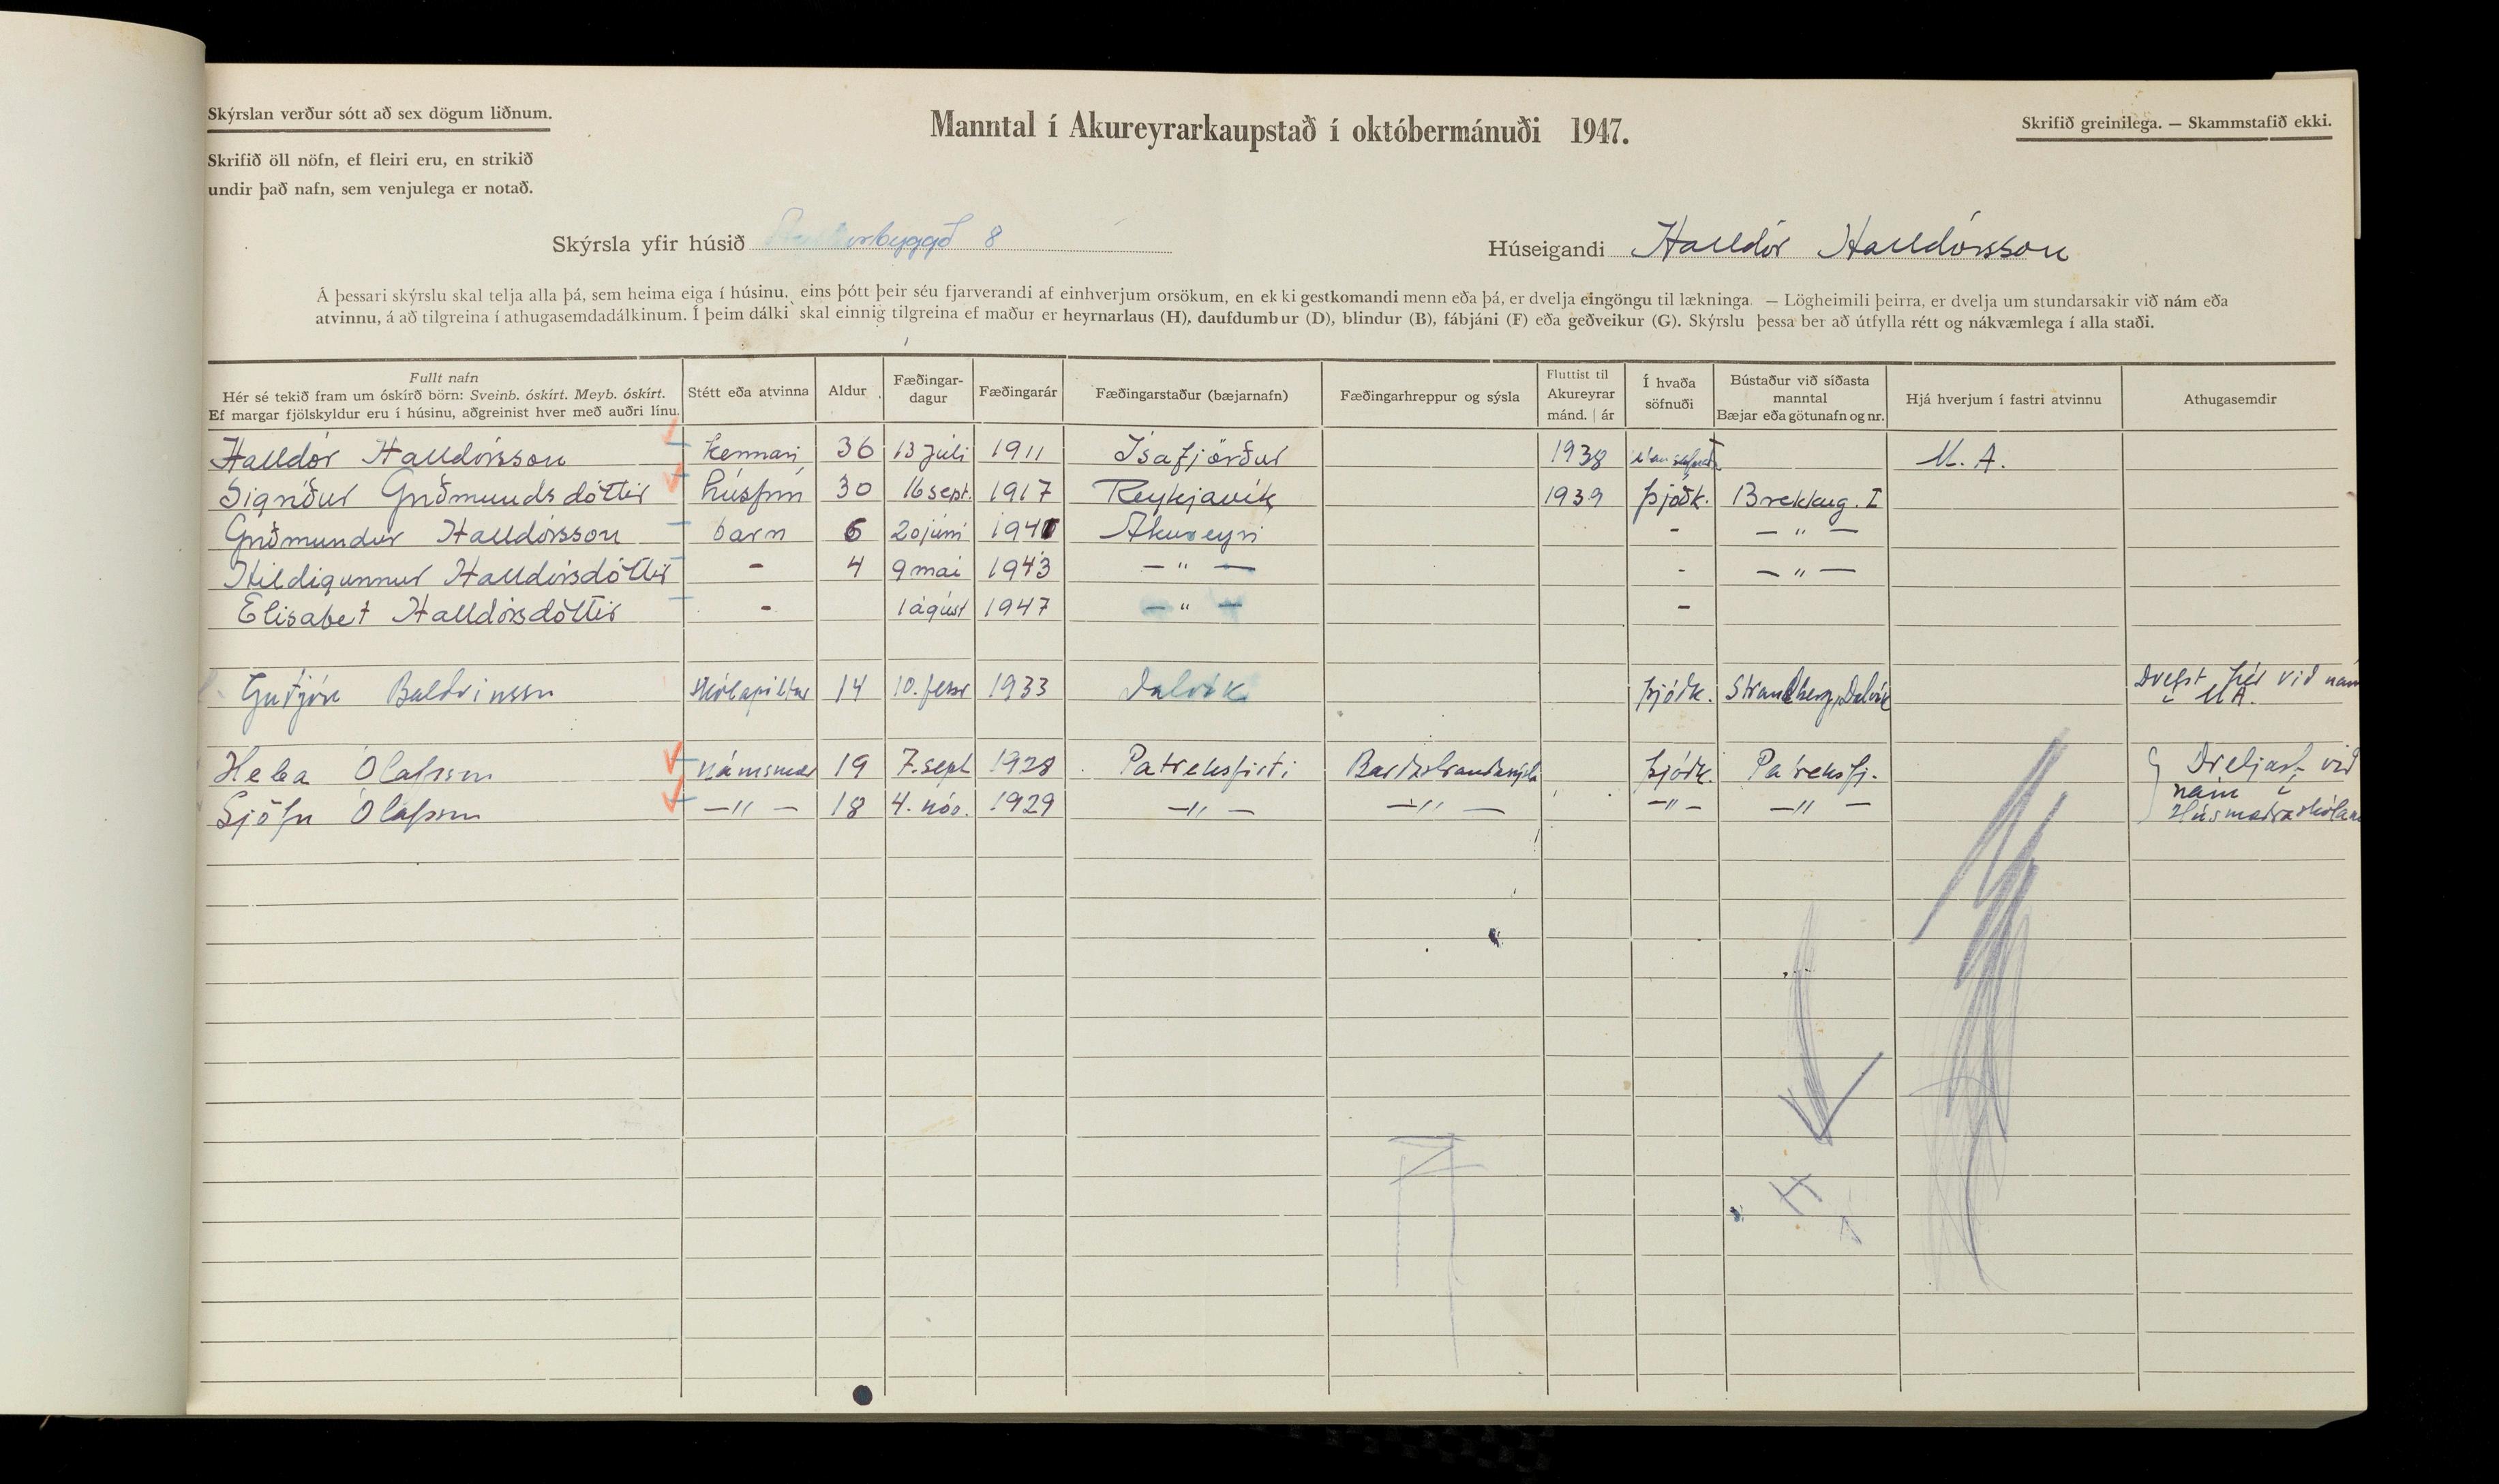 Skýrslan verður sótt að sex dögum liðnum.
Manntal í Akureyrarkaupstað í októbermánuði 1947.
Skrifið greinilega. — Skammstafið ekki.
Skrifið öll nöfn, ef fleiri eru, en strikið
undir það nafn, sem venjulega er notað.
Skýrsla yfir húsið 8
Húseigandi Halldór Halldórsson
Á þessari skýrslu skal telja alla þá, sem heima eiga í húsinu, eins þótt þeir séu fjarverandi af einhverjum orsökum, en ekki gestkomandi menn eða þá, er dvelja eingöngu til lækninga. — Lögheimili þeirra, er dvelja um stundarsakir við nám eða
atvinnu, á að tilgreina í athugasemdadálkinum. Í þeim dálki skal einnig tilgreina ef maður er heyrnarlaus (H), daufdumbur (D), blindur (B), fábjáni (F) eða geðveikur (G). Skýrslu þessa ber að útfylla rétt og nákvæmlega í alla staði.
Fullt nafn
Hér sé tekið fram um óskírð börn: Sveinb. óskírt. Meyb. óskírt.
Ef margar fjölskyldur eru í húsinu, aðgreinist hver með auðri línu.
Stétt eða atvinna
Aldur
Fæðingar-
dagur
Fæðingarár
Fæðingarstaður (bæjarnafn)
Fæðingarhreppur og sýsla
Fluttist til
Akureyrar
mánd. | ár
Í hvaða
söfnuði
Bústaður við síðasta
manntal
Bæjar eða götunafn og nr.
Hjá hverjum í fastri atvinnu
Athugasemdir
Halldór Halldórsson kennari 36 13 júlí 1911 Ísafjörður 1938 M. A.
Sigríður Guðmundsdóttir húsfrú 30 16 sept. 1917 Reykjavík 1939 þjóðk. Brekkug. I
Guðmundur Halldórsson barn 6 20 júní 1941 Akureyri - — " —
Hildigunnur Halldórsdóttir - 4 9 maí 1943 — " — - — " —
Elísabet Halldórsdóttir - 1 ágúst 1947 — " — -
Guðjón Baldvinsson skólapiltur 14 10. febr 1933 Dalvík þjóðk. Strandberg, Dalvík Dvelst hér við nám
í MA.
Heba Ólafsson námsmær 19 7. sept 1928 Patreksfirði Barðastrandasýsla þjóðk. Patreksfj. Dveljast við
nám í
Húsmæðraskólanum
Sjöfn Ólafsson — " — 18 4. nóv. 1929 — " — — " — — " — — " —